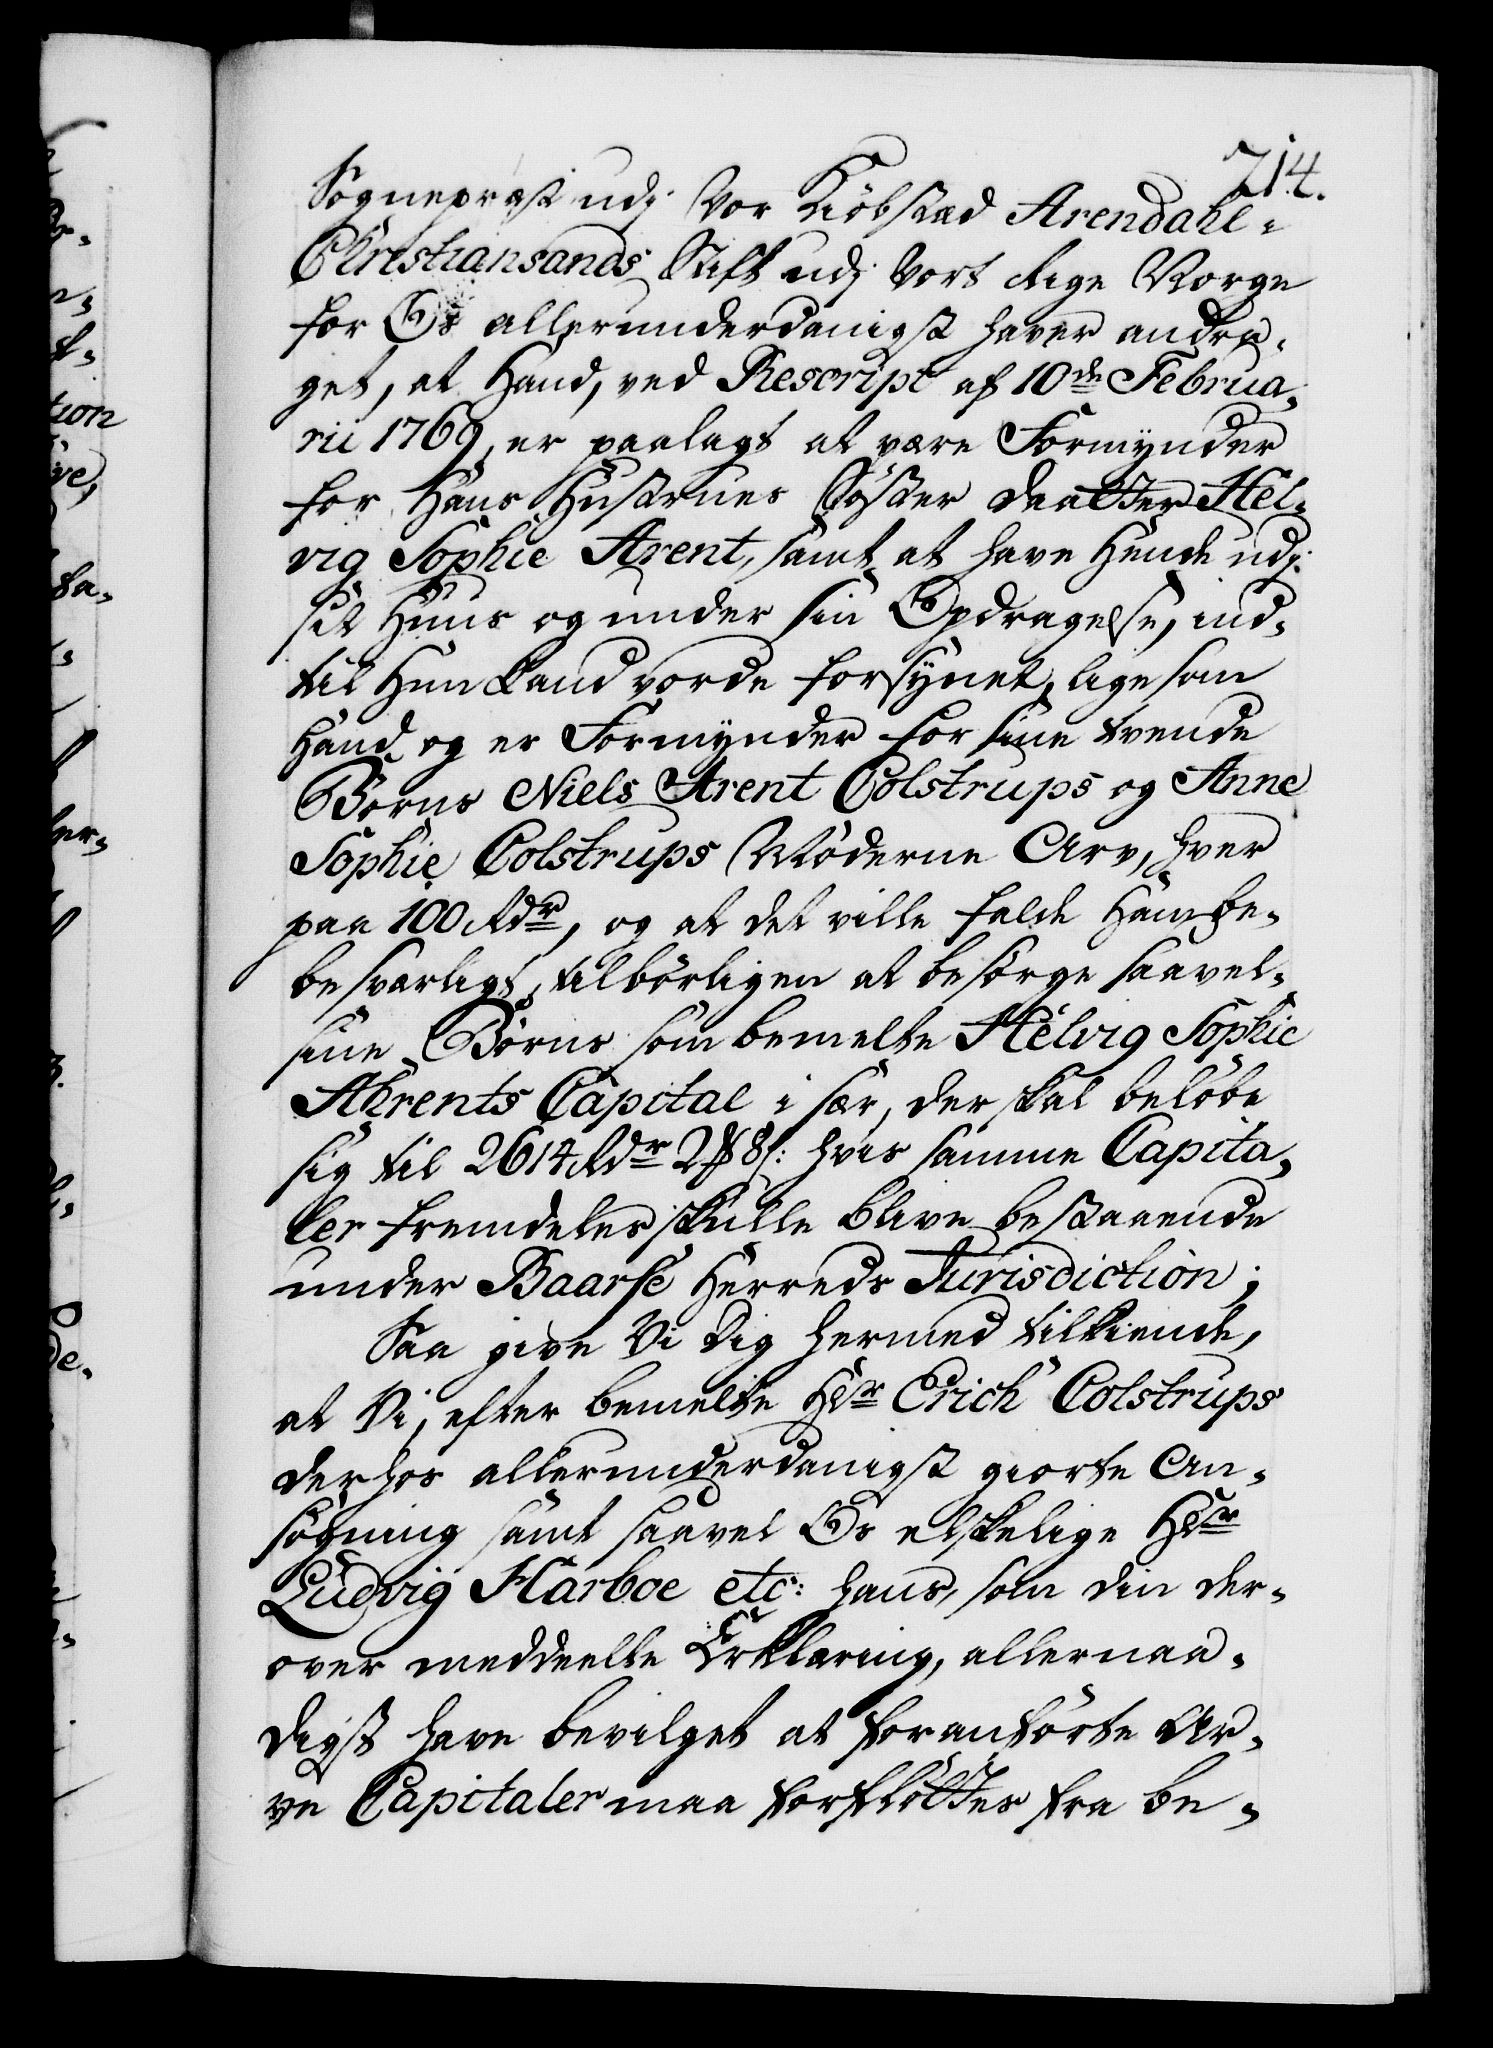 714.
Sognepræst udj Vor Kiöbstæd Arendahl i
Christiansands Stift udj Vort Rige Norge
for Os allerunderdanigst haver andra-
get, at Hand, ved Rescript af 10de Februa-
rii 1769, er paalagt at være Formynder
for Hans Hustrues Söster Daatter Hel-
vig Sophie Arent, samt at have Hende udj
sit Huus og under sin Opdragelse, ind-
til Hun kand vorde forsÿnet, lige som
Hand og er Formynder for sine tvende
Börns Niels Arent Colstrups og Anne
Sophie Colstrups Möderne Arv, hver
paa 100 Rdr, og at det ville falde Ham be-
besværligt, tilbörligen at besörge saavel
sine Börns som bemelte Helvig Sophie
Ahrents Capital i sær, der skal belöbe
sig til 2614 Rdr 2 ₻ 8 s: hvis samme Capita-
ler fremdeles skulle blive bestaaende
under Baarse Herreds Jurisdiction;
Saa give Vi Dig hermed tilkiende,
at Vi, efter bemelte Hr Erich Colstrups
derhos allerunderdanigst giorte An-
sögning samt saavel Os elskelige Hr
Ludvig Harboe etc: hans, som din der-
over meddeelte Erklæring, allernaa-
digst have bevilget at foranförte Ar-
ve Capitaler maa forflöttes fra be-